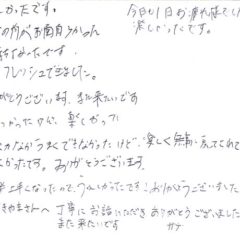 かったです。
今日も1日お疲れ様でし
楽しかったです。
の内がお面白かった
フレッシュできました。
がとうございます。また来たいです
かったけど、楽しかった
なかなかうまくできなかったけど、楽しく
かったです。ありがとうございます。
上手になったので、うれしかったです！ありがとうございました
きやまさんへ 丁寧にお話いただきありがとうございました
また来たいです